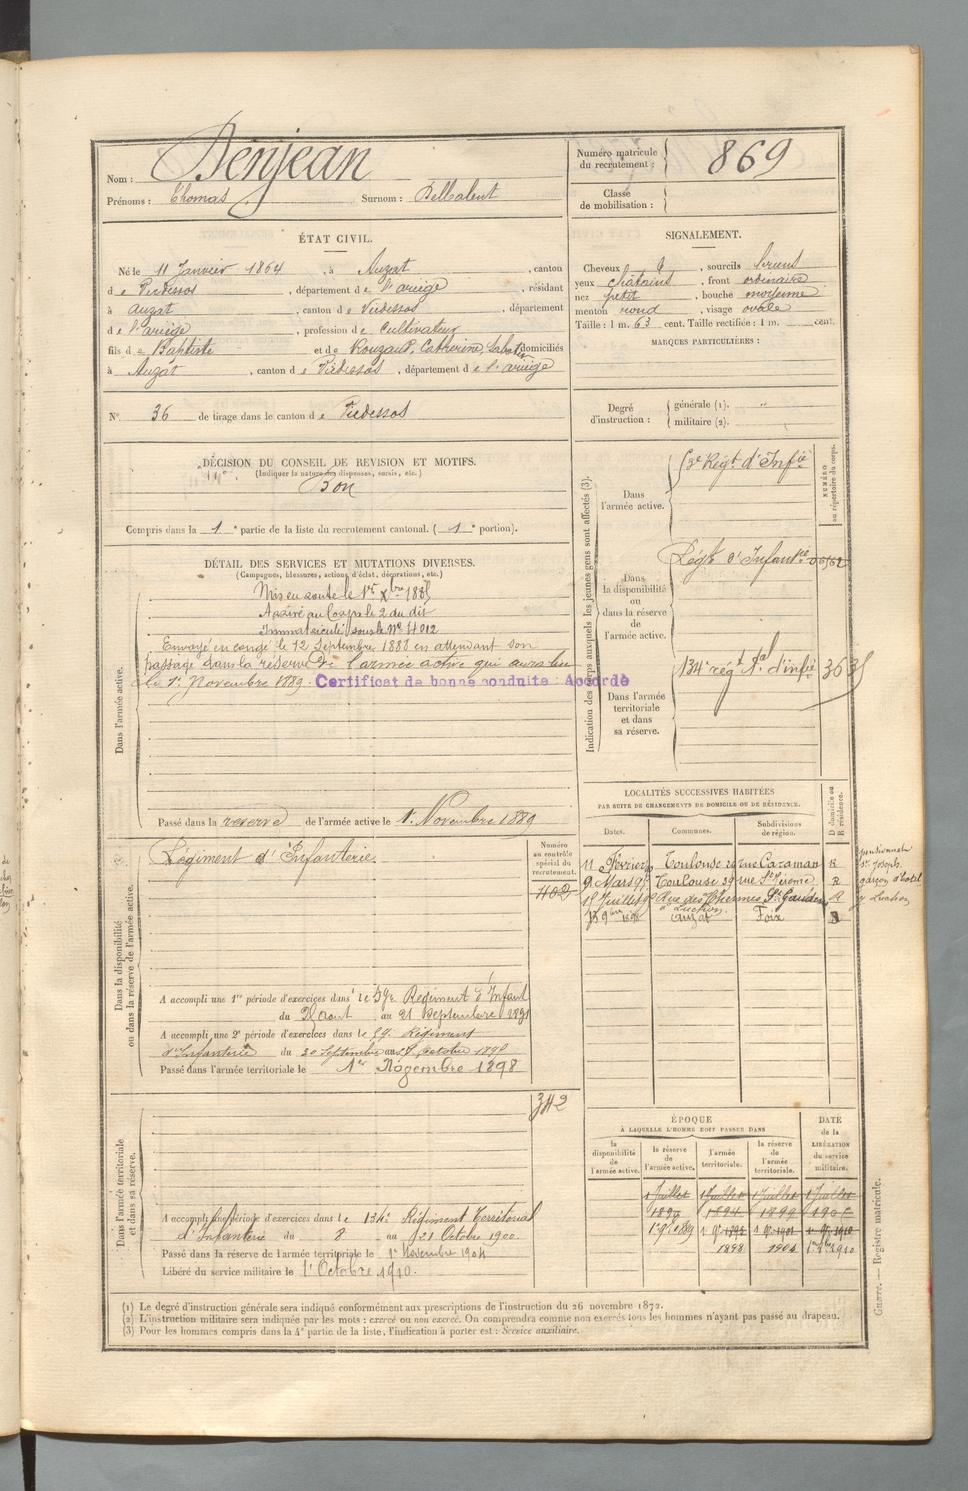 Nom : Denjean
Prénoms : Thomas Surnom :
Numéro matricule du recrutement : 869
Classe de mobilisation :
ÉTAT CIVIL.
Né le 11 Janvier 1864, à Auzat, canton
de Vicdessos, département de l'ariège, résidant
à Auzat, canton de Vicdessos, département
de l'ariège, profession de Cultivateur
fils de Baptiste et de Rouzaud, Catherine, domiciliés
à Auzat, canton de Vicdessos, département de l'ariège
N° 36 de tirage dans le canton de Vicdessos
SIGNALEMENT.
Cheveux, sourcils bruns
yeux châtains, front ordinaire
nez petit, bouche moyenne
menton rond, visage ovale
Taille : 1 m. 63 cent. Taille rectifiée : 1 m. cent.
MARQUES PARTICULIÈRES :
Degré d'instruction : générale (1). "
militaire (2).
DÉCISION DU CONSEIL DE REVISION ET MOTIFS.
(Indiquer la nature des dispenses, sursis, etc.)
Bon
Compris dans la 1e partie de la liste du recrutement cantonal. (1e portion).
DÉTAIL DES SERVICES ET MUTATIONS DIVERSES.
(Campagnes, blessures, actions d'éclat, décorations, etc.)
Dans l'armée active.
Mis en route le 1er Xbre 1885
Arrivé au Corps le 2 du dit
Immatriculé sous le N° 4012
Envoyé en congé le 12 Septembre 1888 en attendant son
passage dans la réserve de l'armée active qui aura lieu
le 1er Novembre 1889. Certificat de bonne conduite : Accordé
Passé dans la reserve de l'armée active le 1er Novembre 1889
Indication des corps auxquels les jeunes gens sont affectés (3).
NUMÉRO au répertoire du corps.
Dans l'armée active.
Régt. d'Infie
Dans la disponibilité ou dans la réserve de l'armée active.
Régt d'Infantrie
Dans l'armée territoriale et dans sa réserve.
134e régt tal d'infie
LOCALITÉS SUCCESSIVES HABITÉES
PAR SUITE DE CHANGEMENTS DE DOMICILE OU DE RÉSIDENCE.
Dates. Communes. Subdivisions de région. D domicile ou R résidence.
11 Février Toulouse rue Caraman R
9 Mars Toulouse 39 rue St Jérome R
15 Juillet Rue des Thermes St Gaudens R
à Luchon
Auzat Foix
pensionnat
St Joseph
garçon d'hotel
à Luchon
Dans la disponibilité ou dans la réserve de l'armée active.
Régiment d'Infanterie.
Numéro au contrôle spécial du recrutement.
402
A accompli une 1re période d'exercices dans le 59e Régiment d'Infant
du 25 Aout au 21 Septembre 1891
A accompli une 2e période d'exercices dans le 59e Régiment
d'Infanterie du 20 Septembre au Octobre
Passé dans l'armée territoriale le 1er Novembre 1898
Dans l'armée territoriale et dans sa réserve.
342
A accompli une période d'exercices dans le 134e Régiment Territorial
d'Infanterie du 8 au 21 Octobre 1900.
Passé dans la réserve de l'armée territoriale le 1er Novembre 1904
Libéré du service militaire le 1er Octobre 1910.
ÉPOQUE
À LAQUELLE L'HOMME DOIT PASSER DANS
la disponibilité de l'armée active. la réserve de l'armée active. l'armée territoriale. la réserve de l'armée territoriale.
DATE de la LIBÉRATION du service militaire.
1 Juillet 1 Juillet 1 Juillet 1 Juillet
1894 1899
1889
1898 1904 1910
(1) Le degré d'instruction générale sera indiqué conformément aux prescriptions de l'instruction du 26 novembre 1872.
(2) L'instruction militaire sera indiquée par les mots : exercé ou non exercé. On comprendra comme non exercés tous les hommes n'ayant pas passé au drapeau.
(3) Pour les hommes compris dans la 4e partie de la liste, l'indication à porter est : Service auxiliaire.
Guerre. — Registre matricule.